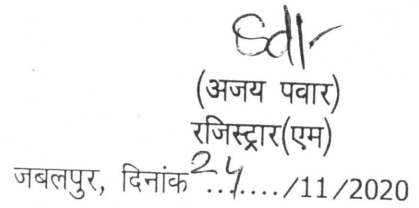 Sd/-
(अजय पवार)
रजिस्ट्रार(एम)
जबलपुर, दिनांक 24/11/2020